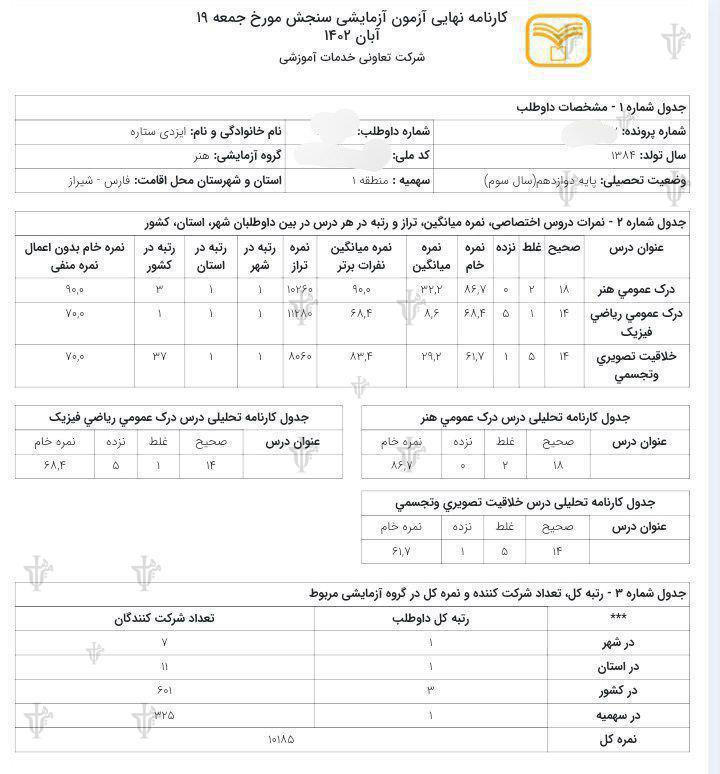 کارنامه نهایی آزمون آزمایشی سنجش مورخ جمعه ۱۹
آبان ۱۴۰۲
شرکت تعاونی خدمات آموزشی
جدول شماره ۱ - مشخصات داوطلب
شماره پرونده: شماره داوطلب: نام خانوادگی و نام: ایزدی ستاره
سال تولد: ۱۳۸۴ کد ملی: گروه آزمایشی: هنر
وضعیت تحصیلی: پایه دوازدهم(سال سوم) سهمیه : منطقه ۱ استان و شهرستان محل اقامت: فارس - شیراز
جدول شماره ۲ - نمرات دروس اختصاصی، نمره میانگین، تراز و رتبه در هر درس در بین داوطلبان شهر، استان، کشور
عنوان درس صحیح غلط نزده نمره خام نمره میانگین نمره میانگین نفرات برتر نمره تراز رتبه در شهر رتبه در استان رتبه در کشور نمره خام بدون اعمال نمره منفی
درک عمومي هنر ۱۸ ۲ ۰ ۸۶,۷ ۳۲,۲ ۹۰,۰ ۱۰۲۶۰ ۱ ۱ ۳ ۹۰,۰
درک عمومي رياضي فيزيک ۱۴ ۱ ۵ ۶۸,۴ ۸,۶ ۶۸,۴ ۱۱۲۸۰ ۱ ۱ ۱ ۷۰,۰
خلاقيت تصويري وتجسمي ۱۴ ۵ ۱ ۶۱,۷ ۲۹,۲ ۸۳,۴ ۸۰۶۰ ۱ ۱ ۳۷ ۷۰,۰
جدول کارنامه تحلیلی درس درک عمومي هنر
عنوان درس صحیح غلط نزده نمره خام
۱۸ ۲ ۰ ۸۶,۷
جدول کارنامه تحلیلی درس درک عمومي رياضي فيزيک
عنوان درس صحیح غلط نزده نمره خام
۱۴ ۱ ۵ ۶۸,۴
جدول کارنامه تحلیلی درس خلاقيت تصويري وتجسمي
عنوان درس صحیح غلط نزده نمره خام
۱۴ ۵ ۱ ۶۱,۷
جدول شماره ۳ - رتبه کل، تعداد شرکت کننده و نمره کل در گروه آزمایشی مربوط
*** رتبه کل داوطلب تعداد شرکت کنندگان
در شهر ۱ ۷
در استان ۱ ۱۱
در کشور ۳ ۶۰۱
در سهمیه ۱ ۳۲۵
نمره کل ۱۰۱۸۵